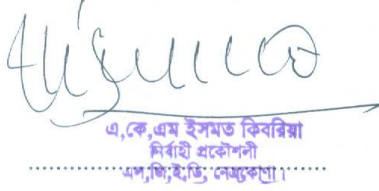 এ,কে,এম ইসমত কিবরিয়া
নির্বাহী প্রকৌশলী
এল,জি,ই,ডি, নেত্রকোণা।